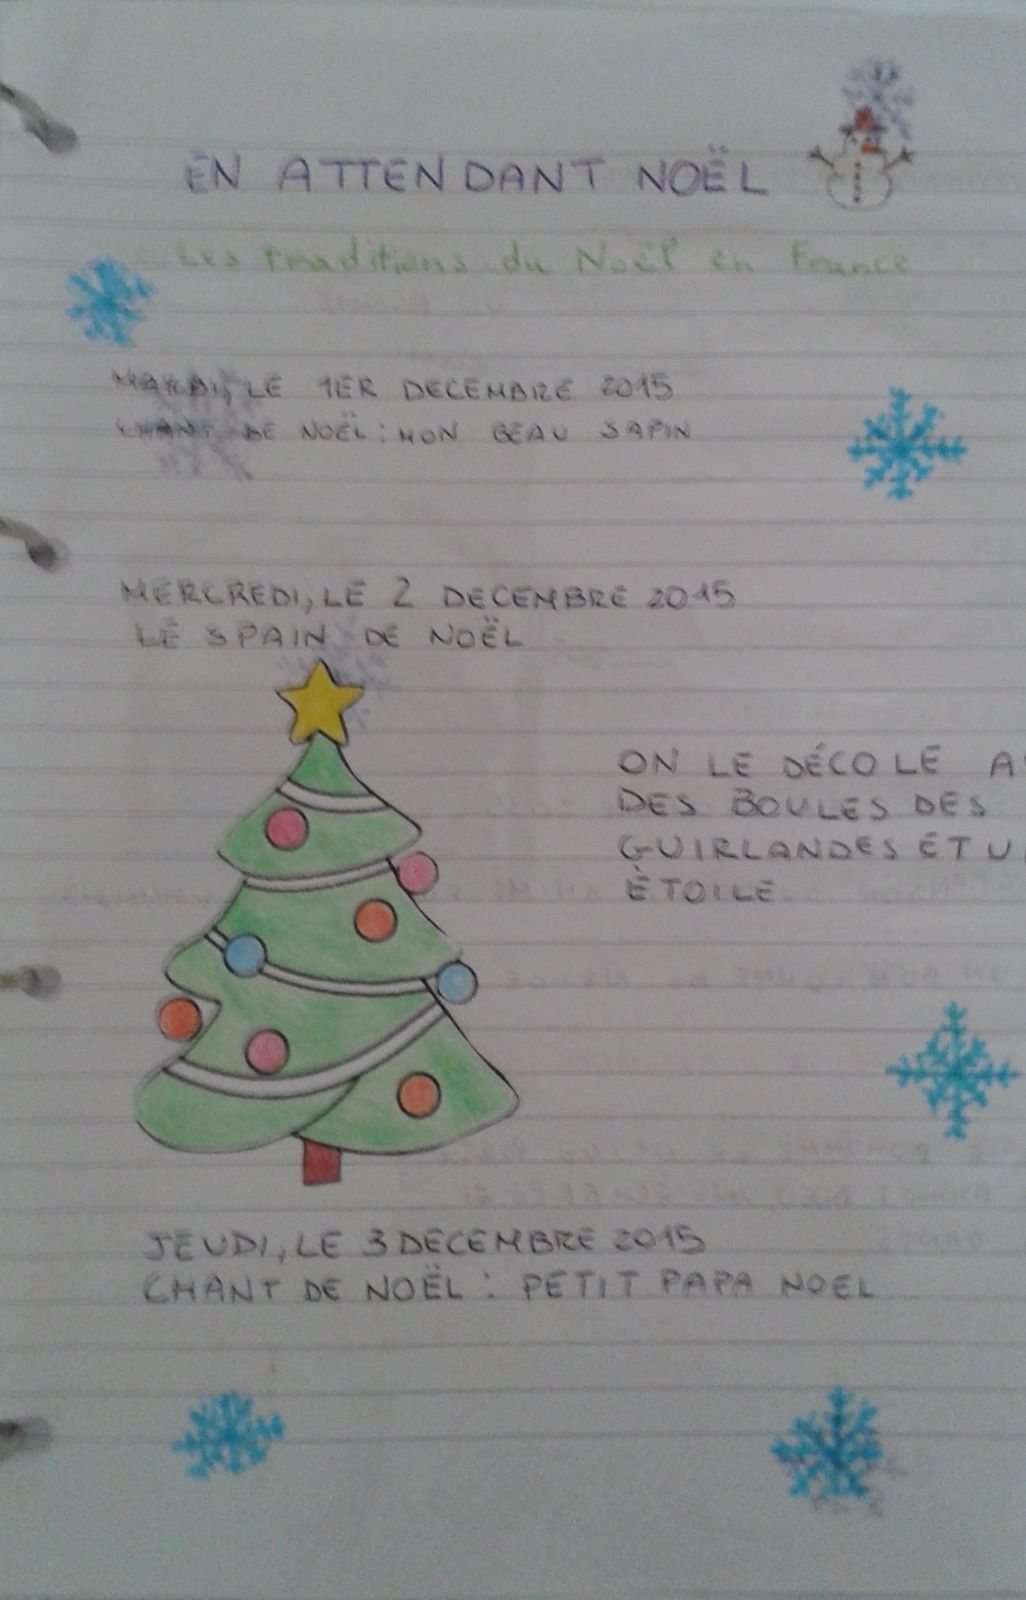 EN ATTENDANT NOËL
Les traditions du Noël en France
MARDI, LE 1ER DECEMBRE 2015
CHANT DE NOËL: MON BEAU SAPIN
MERCREDI, LE 2 DECEMBRE 2015
LE SPAIN DE NOËL
ON LE DÉCOLE
DES BOULES DES
GUIRLANDES ET
ÈTOILE
JEUDI, LE 3 DECEMBRE 2015
CHANT DE NOËL: PETIT PAPA NOEL